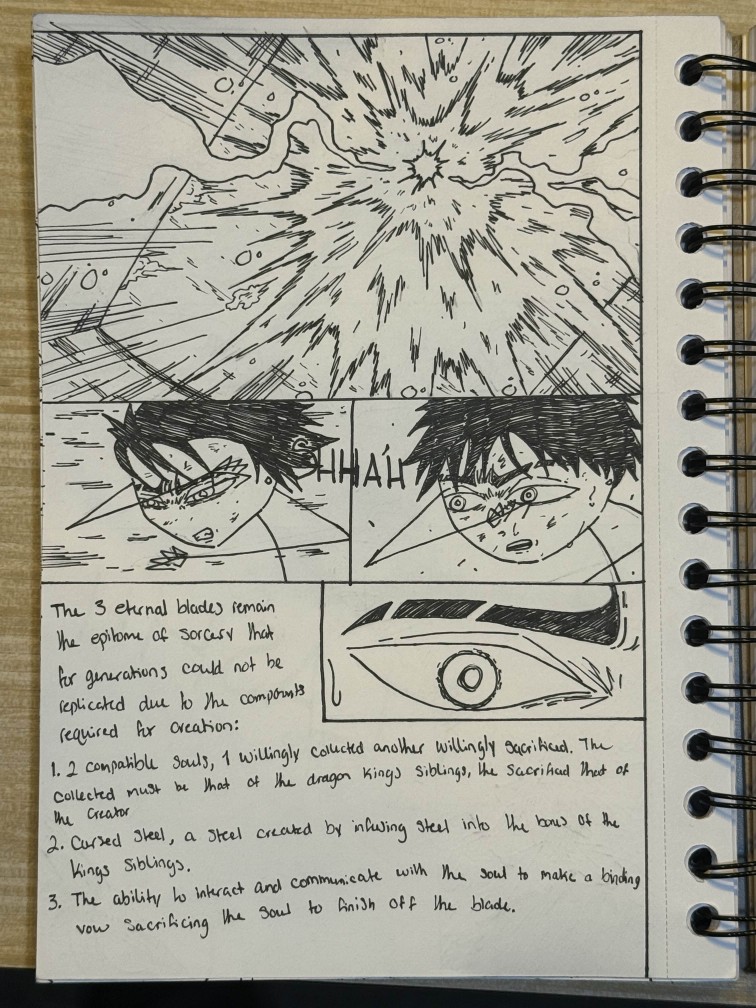 SHHA'H
The 3 eternal blades remain
the epitome of sorcery that
for generations could not be
replicated due to the
required for creation:
1. 2 compatible souls, 1 willingly collected another willingly sacrificed. The
collected must be that of the dragon kings siblings, the sacrificed that of
the creator
2. Cursed steel, a steel created by infusing steel into the of the
kings siblings.
3. The ability to interact and communicate with the soul to make a binding
vow sacrificing the soul to finish off the blade.